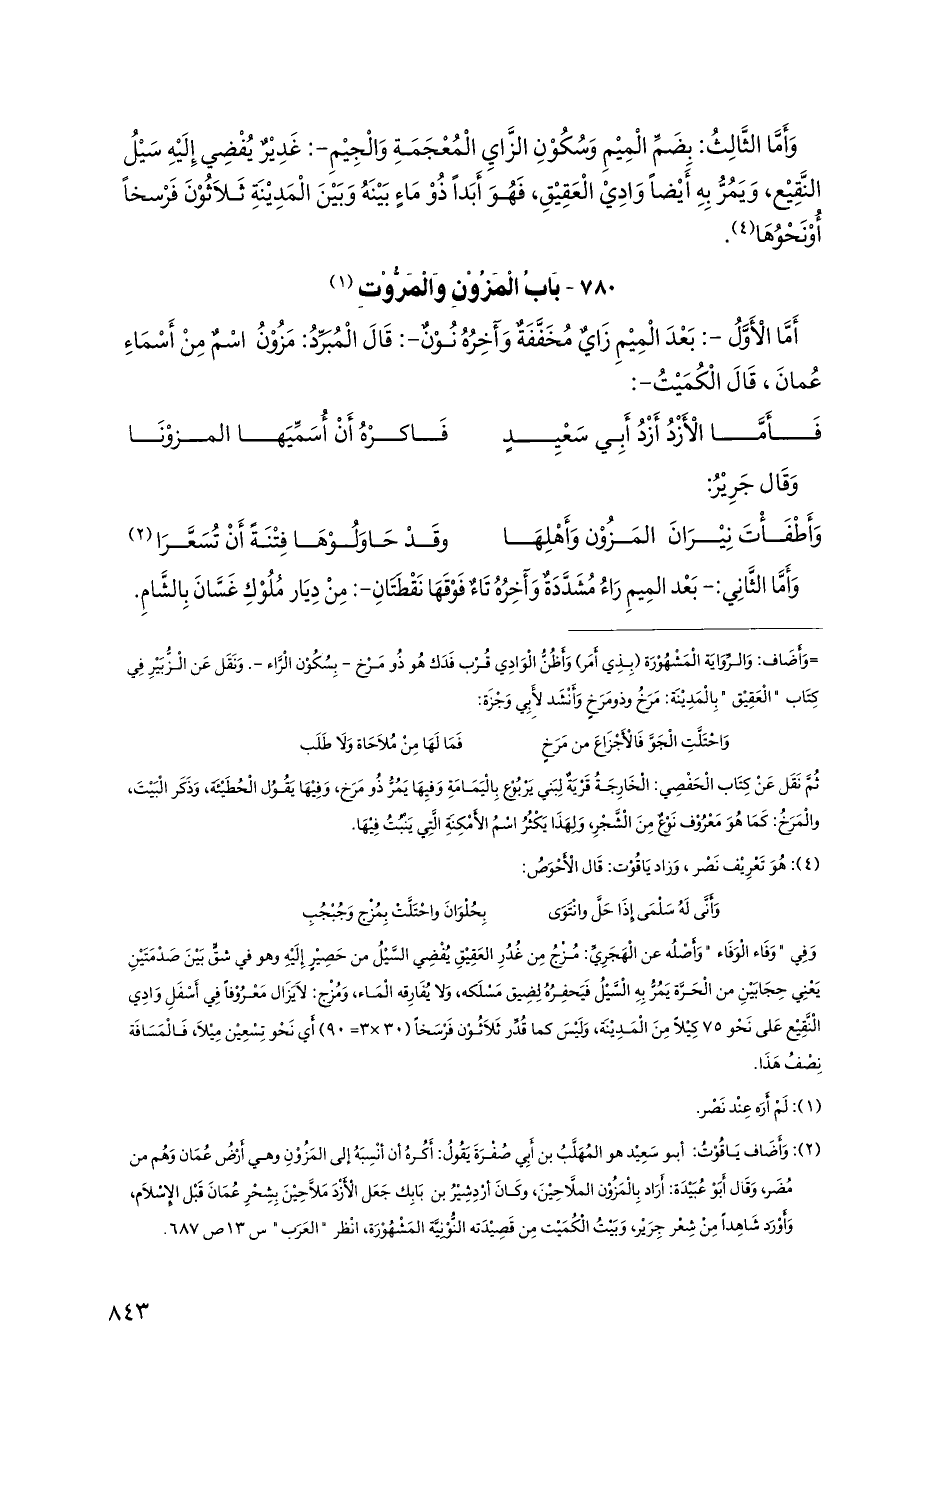 وَأَمَّا الثَّالِثُ: بِضَمِّ الْمِيْمِ وَسُكُوْنِ الزَّايِ الْمُعْجَمَةِ وَالْجِيْمِ-: غَدِيْرٌ يُفْضِي إِلَيْهِ سَيْلُ
النَّقِيْعِ، وَيَمُرُّ بِهِ أَيْضاً وَادِيْ الْعَقِيْقِ، فَهُوَ أَبَداً ذُوْ مَاءٍ بَيْنَهُ وَبَيْنَ الْمَدِيْنَةِ ثَلاَثُوْنَ فَرْسخاً
أَوْنَحْوُهَا(٤).
٧٨٠ - بَابُ الْمَزُوْنِ والْمَرُّوْت (١)
أَمَّا الْأَوَّلُ -: بَعْدَ الْمِيْمِ زَايٌ مُخَفَّفَةٌ وَآخِرُهُ نُوْنٌ-: قَالَ الْمُبَرِّدُ: مَزُوْنُ اسْمٌ مِنْ أَسْمَاءِ
عُمانَ ، قَالَ الْكُمَيْتُ-:
فَأَمَّا الْأَزْدُ أَزْدُ أَبِي سَعْيِدٍ فَاكرْهُ أَنْ أُسَمِّيَهَا المزوْنَا
وَقَال جَرِيْرُ:
وَأَطْفَأْتَ نِيْرَانَ المَزُوْن وَأَهْلِهَا وقَدْ حَاوَلُوْهَا فِتْنَةً أَنْ تُسَعَّرَا(٢)
وَأَمَّا الثَّانِي:- بَعْد الميمِ رَاءُ مُشَدَّدَةٌ وَآخِرُهُ تَاءٌ فَوْقَهَا نَقْطَتَانِ-: مِنْ دِيَار مُلُوْكِ غَسَّانَ بِالشَّامِ.
=وَأَضَاف: وَالرِّوَايَة الْمَشْهُوْرَة (بِذِي أَمَر) وَأَظُنُّ الْوَادِي قُرْب فَدَك هُو ذُو مَرْخ - بِسُكُوْن الرَّاء -. وَنَقَل عَن الزُّبَيْرِ فِي
كِتَاب "الْعَقِيْق "بِالْمَدِيْنَة: مَرَخُ وذومَرَخٍ وَأَنْشَد لأَبِي وَجْزَة:
وَاحْتَلَّتِ الْجَوَّ فَالأَجْزَاعَ من مَرَخٍ فَمَا لَهَا مِنْ مُلاَحَاة وَلَا طَلَب
ثُمَّ نَقَل عَنْ كِتَاب الْحَفْصِي: الْخَارِجَةُ قَرْيَةٌ لِبَني يَرْبُوْعٍ بِالْيَمَامَةِ وَفِيهَا يَمُرُّ ذُو مَرَخ، وَفِيْهَا يَقُوْل الْحُطَيْئَة، وَذَكَر الْبَيْتَ،
والْمَرْخُ: كَمَا هُوَ مَعْرُوْف نَوْعٌ مِنَ الشَّجْرِ، وَلِهَذَا يَكْثُرُ اسْمُ الأَمْكِنَةِ الَّتِي يَنْبُتُ فِيْهَا.
(٤): هُوَ تَعْرِيْف نَصْر ، وَزاد يَاقُوْت: قَال الْأَحْوَصُ:
وَأَنَّى لَهُ سَلْمَى إِذَا حَلَّ وانْتَوَى بِحُلْوَانَ واحْتَلَّتْ بِمُزْجٍ وَجُبْجُبِ
وَفِي "وَفَاء الْوَفَاء "وَأَصْلُه عن الْهَجَرِيِّ: مُزْجٌ مِن غُدُرِ الْعَقِيْقِ يُفْضِي السَّيْلُ من حَصِيْرٍ إِلَيْهِ وهو في شقٍّ بَيْنَ صَدْمَتَيْنِ
يَعْنِي حِجَابَيْنِ من الْحَرَّة يَمُرُّ بِهِ السَّيْلُ فَيَحفِرُهُ لِضِيقِ مَسْلَكه، وَلا يُفَارِقه الْمَاء، وَمُزْج: لاَيَزَال مَعْرُوْفاً فِي أَسْفَلِ وَادِي
الْنَّقِيْعِ عَلَى نَحْو ٧٥ كِيْلاً مِنَ الْمَدِيْنَة، وَلَيْسَ كما قُدِّر ثَلاَثُوْن فَرْسَخاً (٣٠ ×٣= ٩٠) أَي نَحْو تِسْعِيْن مِيْلاً، فَالْمَسَافَة
نِصْفُ هَذَا.
(١): لَمْ أَرَه عِنْد نَصْر.
(٢): وَأَضَاف يَاقُوْتُ: أَبو سَعِيْد هو المُهَلَّبُ بن أَبِي صُفْرَة يَقُولُ: أَكْرهُ أَن أَنْسِبَهُ إلى المَزُوْنِ وهي أَرْضُ عُمَان وَهُم من
مُضَر، وَقَال أَبُوْ عُبَيْدَة: أَرَاد بِالْمَزُوْن الملاَّحِيْن، وكَانَ أَرْدِشيْرُ بن بَابِك جَعَل الأَزْدَ مَلاَّحِيْنَ بِشِحْرِ عُمَانَ قَبْل الإِسْلاَم،
وَأَوْرَد شَاهِداً مِنْ شِعْر جَرِيْر، وَبَيْتُ الْكُمَيْت مِن قَصِيْدَته النُّوْنِيَّة المَشْهُوْرَة، انْظر "العَرَب" س ١٣ ص ٦٨٧.
٨٤٣